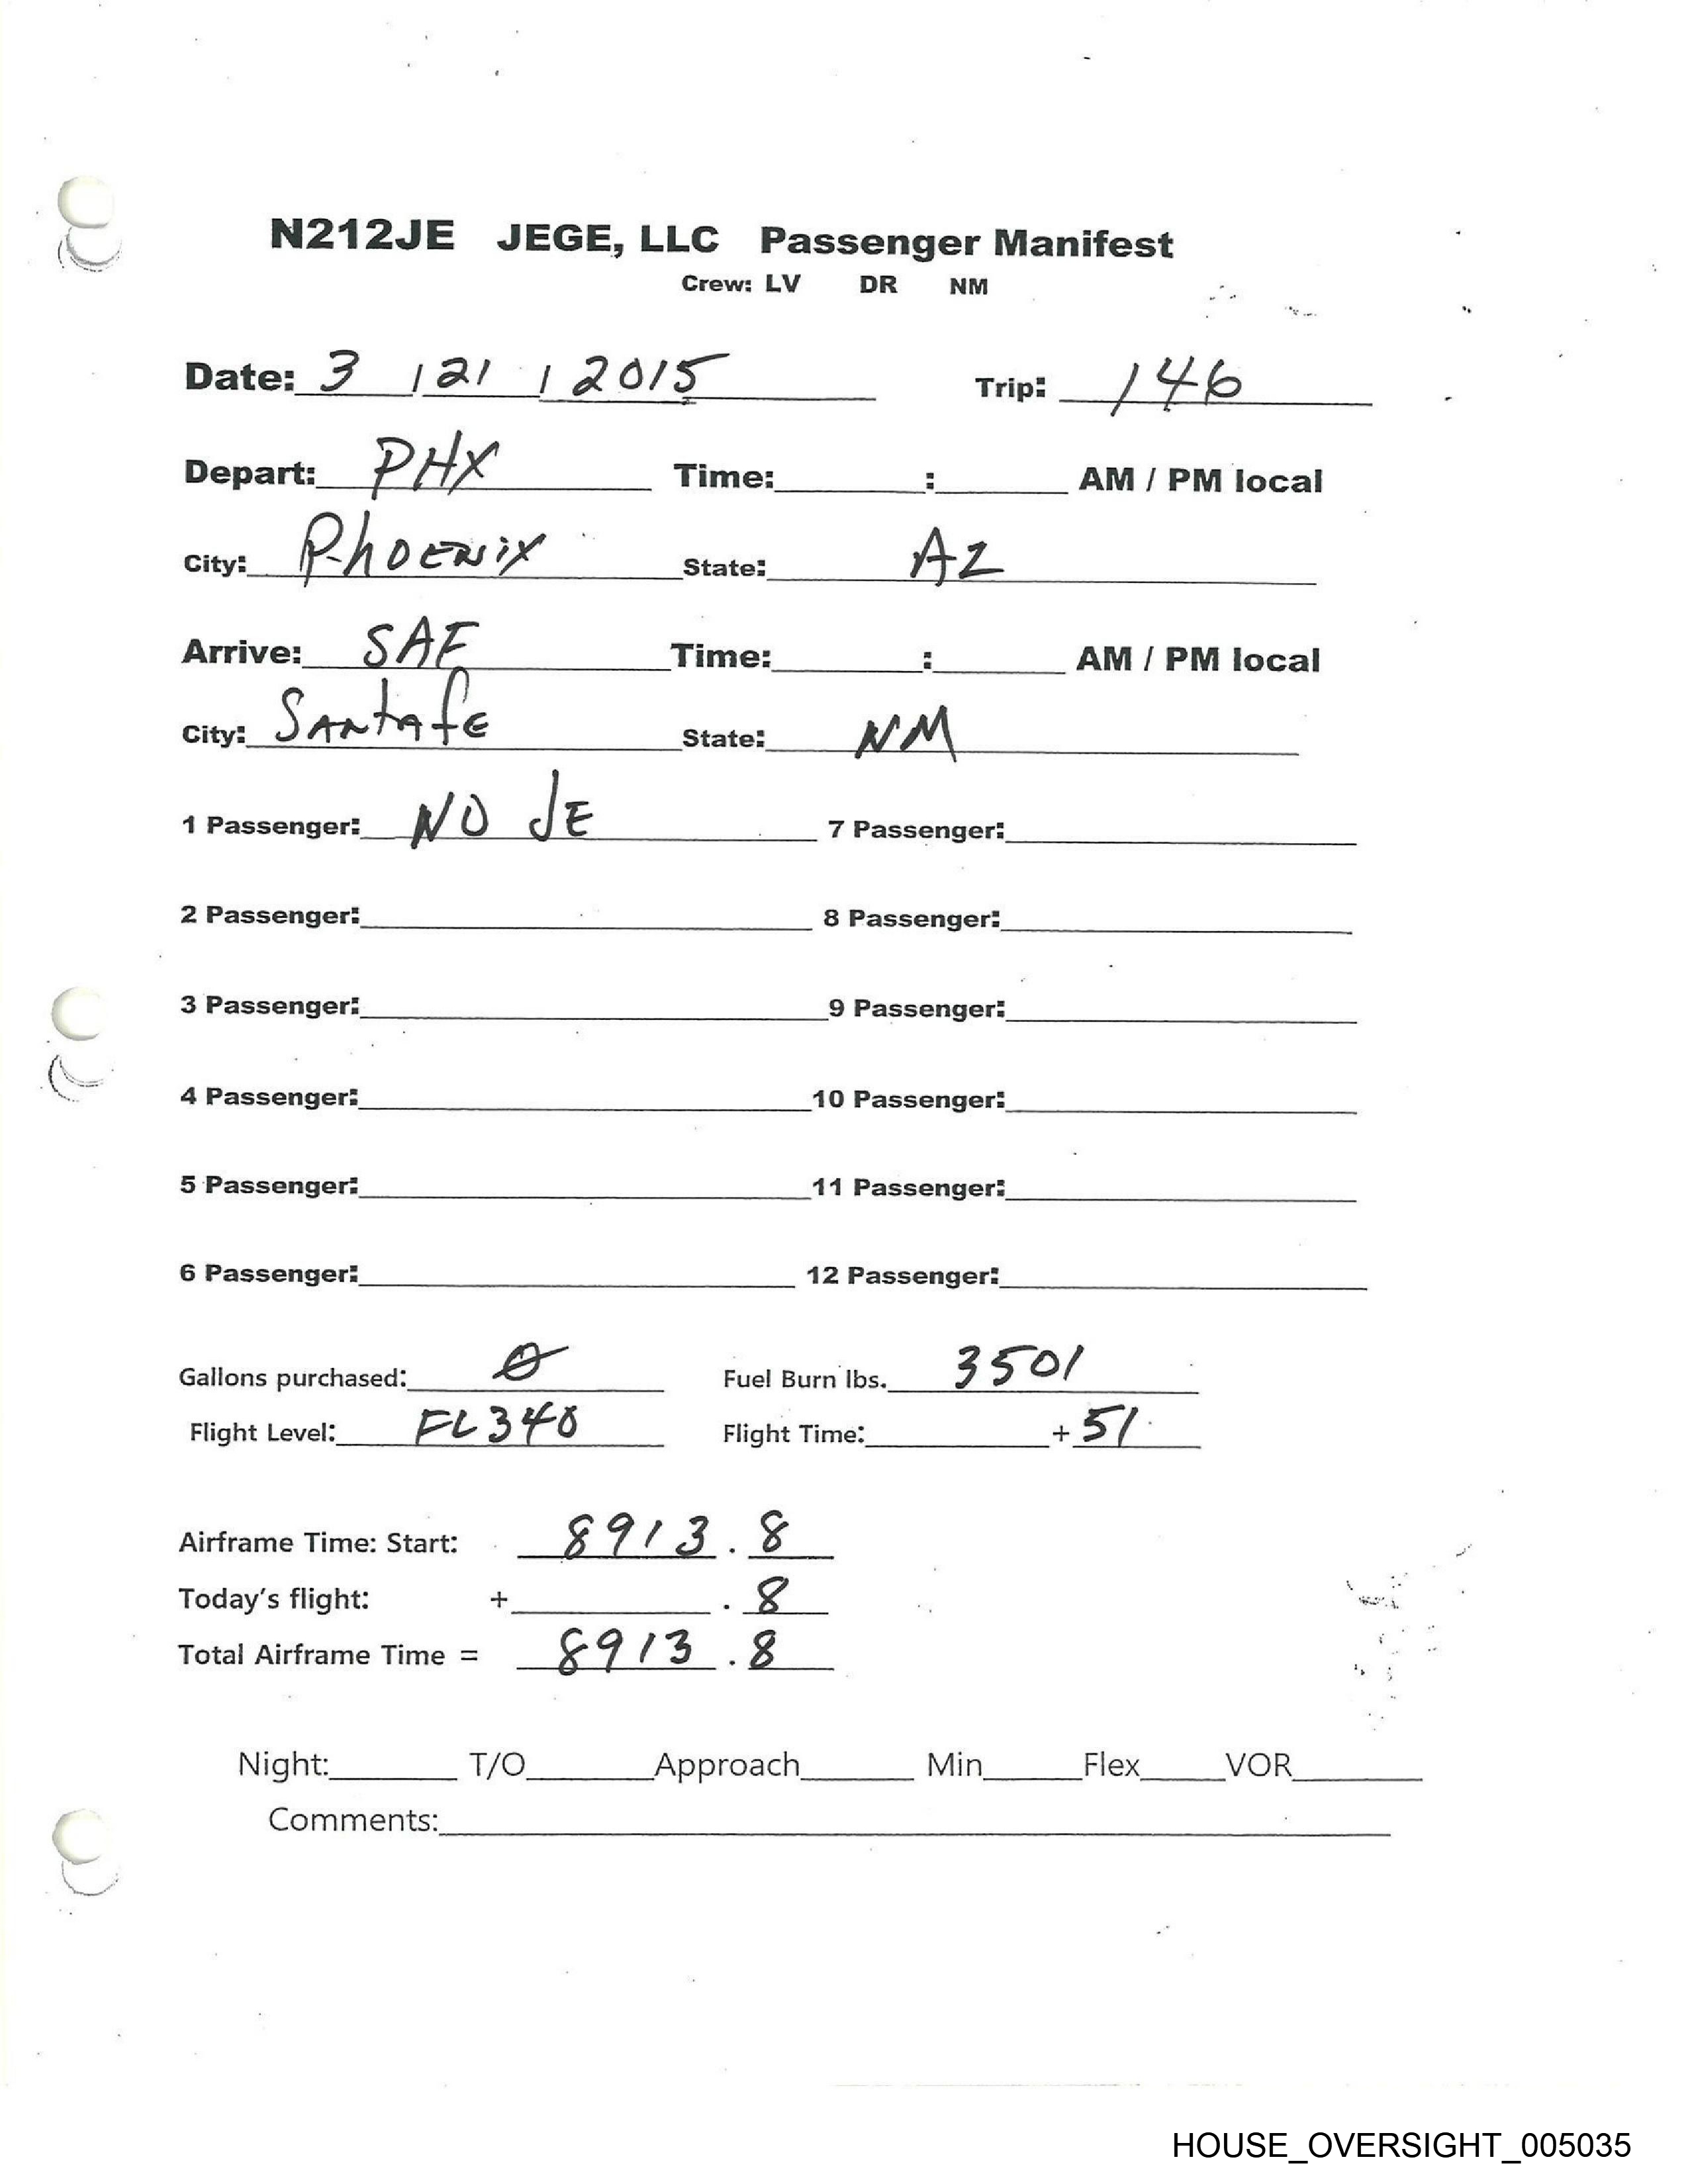 N212JE JEGE, LLC Passenger Manifest
Crew: LV DR NM
Date: 3 / 21 / 2015 Trip: 146
Depart: PHX Time: : AM / PM local
City: PhOENiX State: AZ
Arrive: SAF Time: : AM / PM local
City: SANtAfE State: NM
1 Passenger: NO JE 7 Passenger:
2 Passenger: 8 Passenger:
3 Passenger: 9 Passenger:
4 Passenger: 10 Passenger:
5 Passenger: 11 Passenger:
6 Passenger: 12 Passenger:
Gallons purchased: 0 Fuel Burn lbs. 3501
Flight Level: FL340 Flight Time: + 51
Airframe Time: Start: 8913 . 8
Today's flight: + . 8
Total Airframe Time = 8913 . 8
Night: T/O Approach Min Flex VOR
Comments:
HOUSE_OVERSIGHT_005035